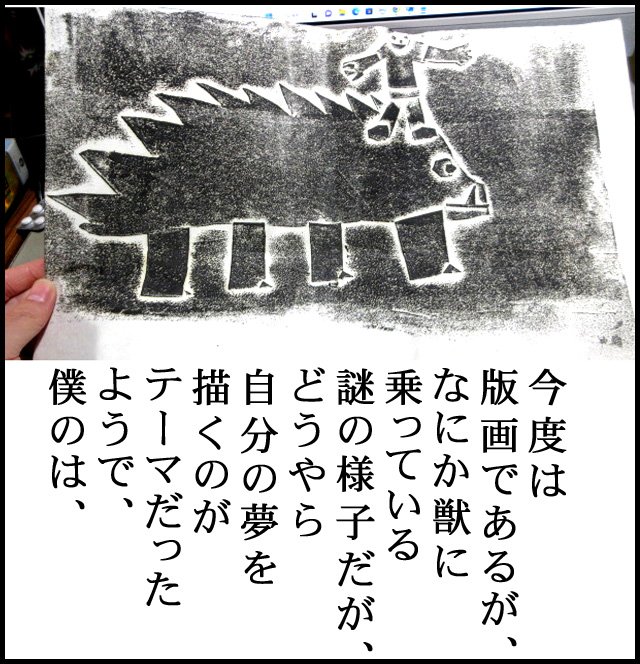 今度は
版画であるが、
なにか獣に
乗っている
謎の様子だが、
どうやら
自分の夢を
描くのが
テーマだった
ようで、
僕のは、